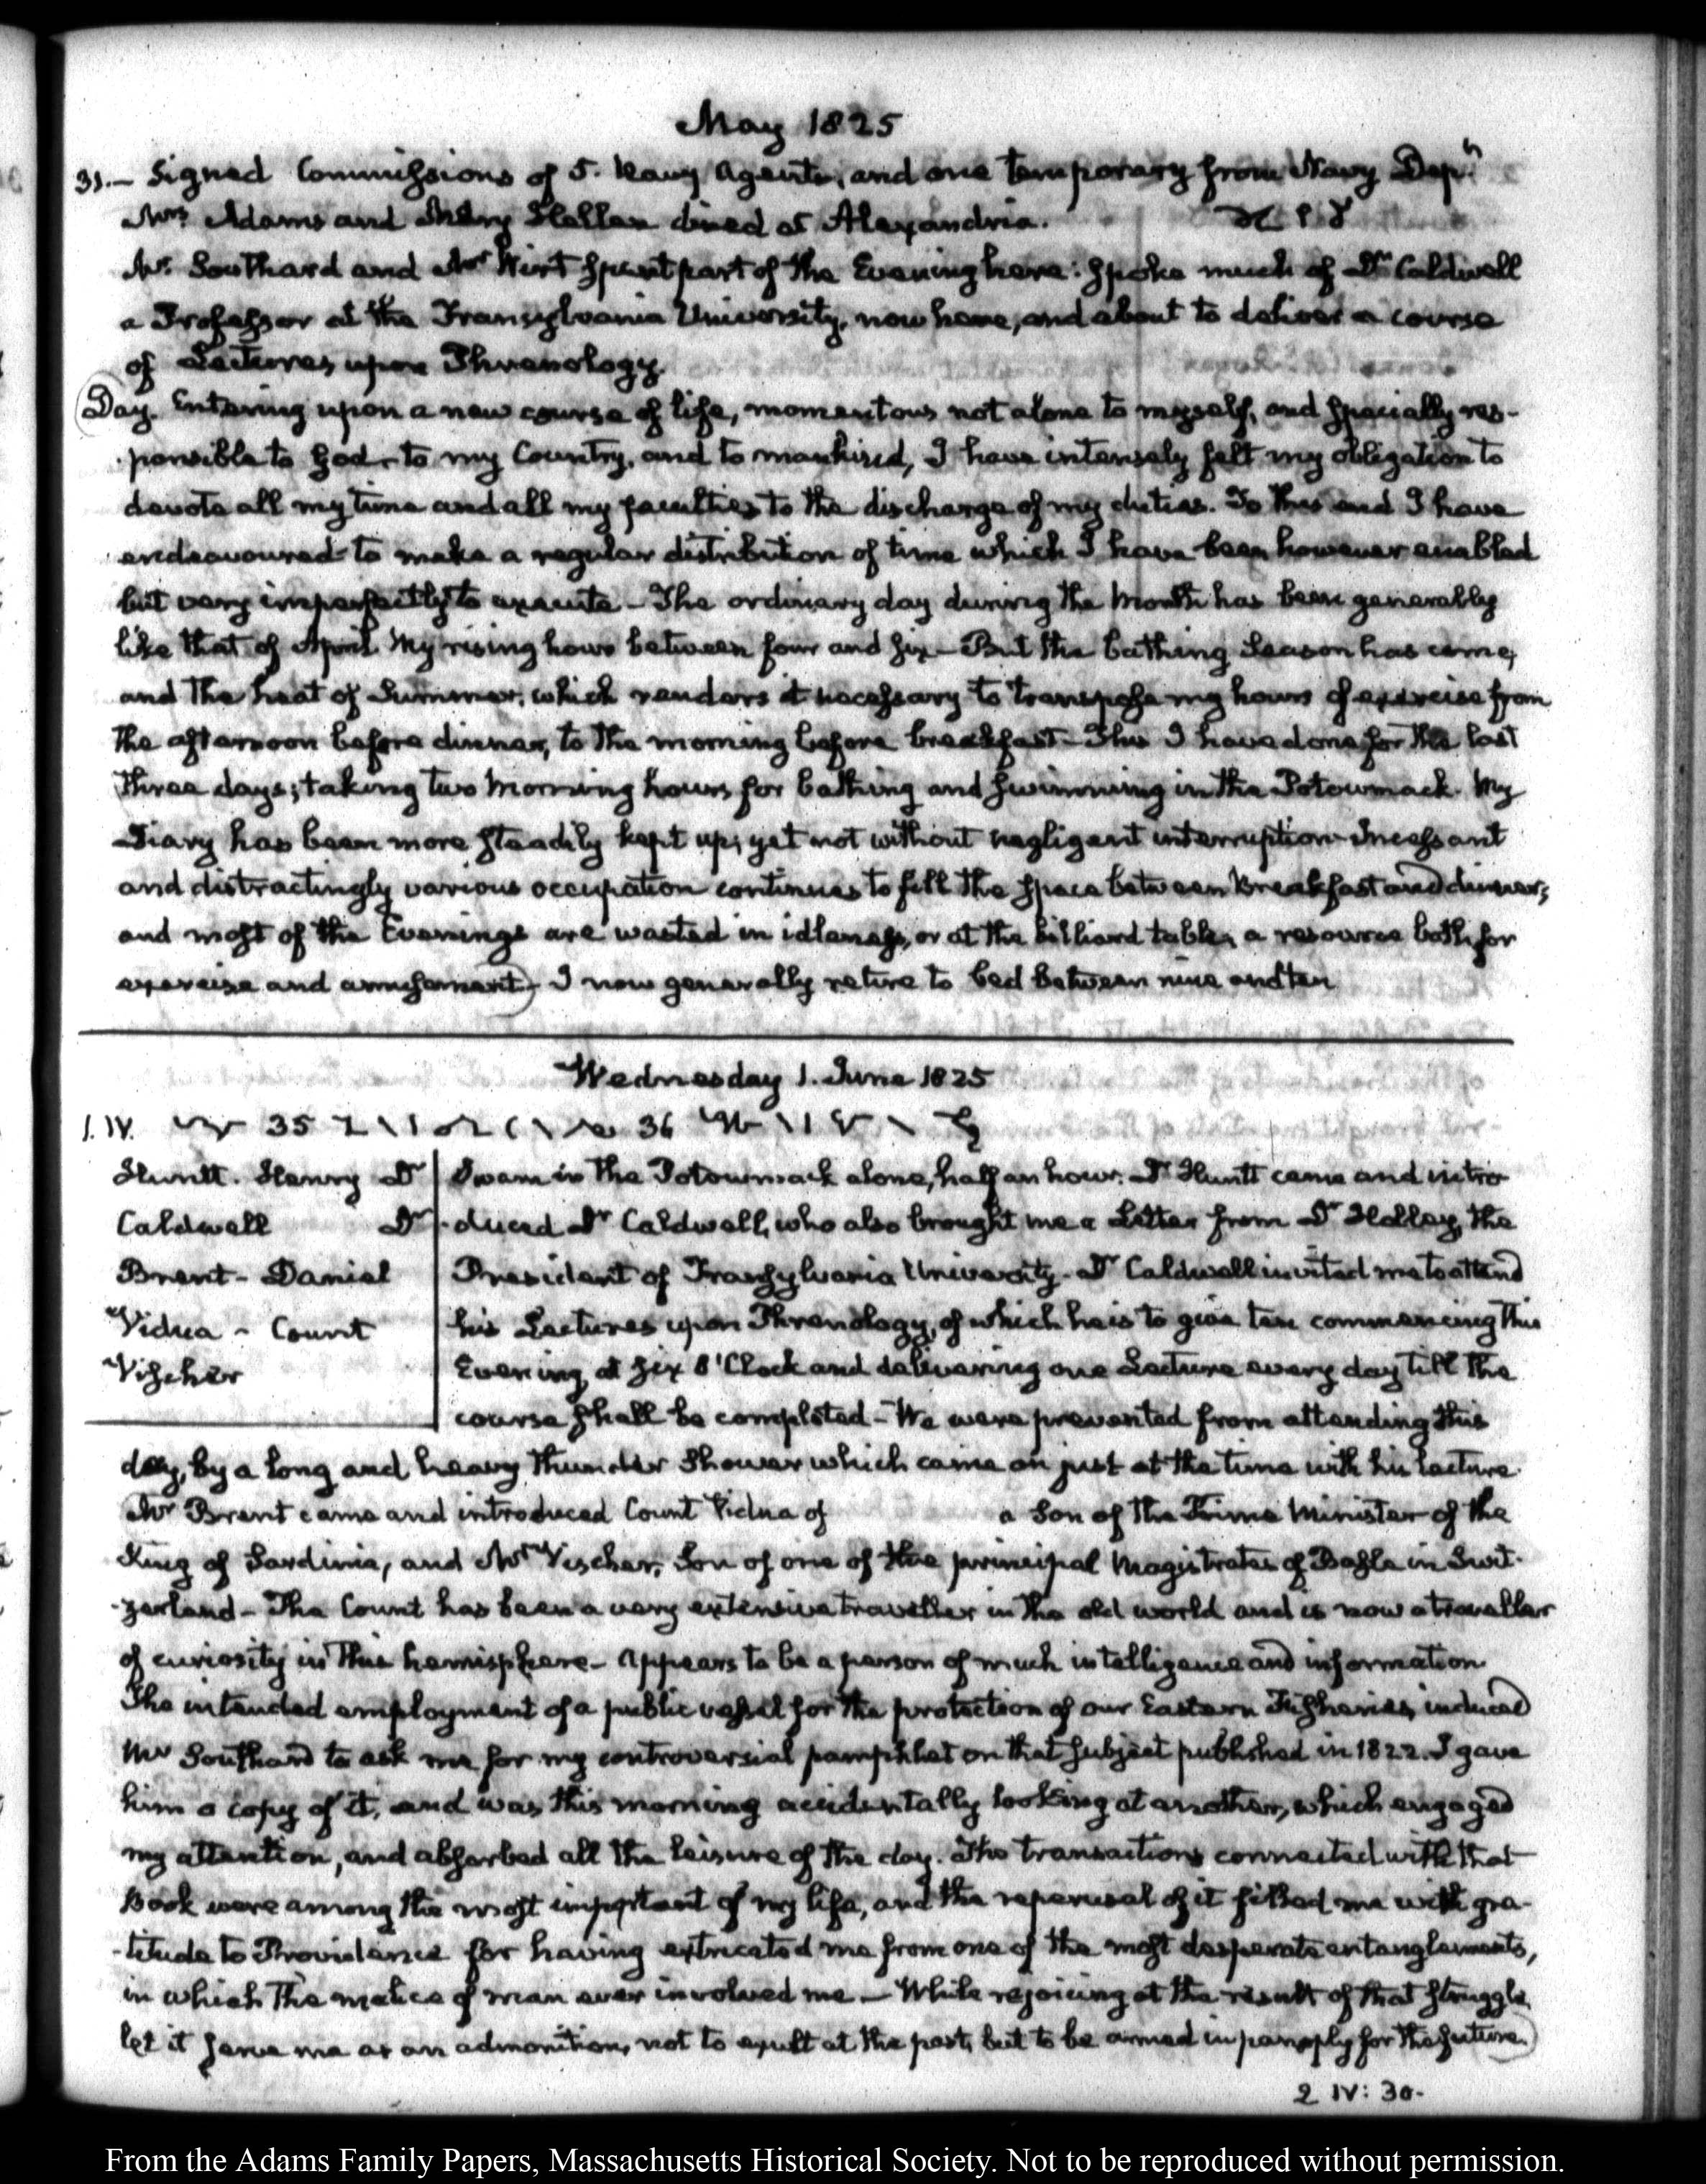 May 1825
31.— Signed Commissions of 5. Navy Agents, and one temporary from Navy Dept
Mrs Adams and Mary Hellen dined at Alexandria.
Mr Southard and Mr Wirt spent part of the Evening here: spoke much of Dr Caldwell
a Professor at the Transylvania University, now here, and about to deliver a course
of Lectures upon Phrenology.
Day. Entering upon a new course of life, momentous not alone to myself, and specially res-
-ponsible to God, to my Country, and to mankind, I have intensely felt my obligation to
devote all my time and all my faculties to the discharge of my duties. To this end I have
endeavoured to make a regular distribution of time which I have been however enabled
but very imperfectly to execute— The ordinary day during the Month has been generally
like that of April. My rising hour between four and six— But the bathing Season has come,
and the heat of Summer, which renders it necessary to transpose my hours of exercise from
the afternoon before dinner, to the morning before breakfast— This I have done for the last
three days; taking two Morning hours for bathing and swimming in the Potowmack. My
Diary has been more steadily kept up; yet not without negligent interruption— Incessant
and distractingly various occupation continues to fill the space between Breakfast and dinner;
and most of the Evenings are wasted in idleness, or at the billiard table, a resource both for
exercise and amusement) I now generally retire to bed between nine and ten
Wednesday 1. June 1825
1. IV. 35 36
Huntt. Henry Dr
Caldwell Dr
Brent— Daniel
Vidua— Count
Vischer
Swam in the Potowmack alone, half an hour. Dr Huntt came and intro-
-duced Dr Caldwell, who also brought me a Letter from Dr Holley, the
President of Transylvania University— Dr Caldwell invited me to attend
his Lectures upon Phrenology, of which he is to give ten commencing this
Evening at six O'Clock and delivering one Lecture every day till the
course shall be completed— We were prevented from attending this
day, by a long and heavy thunder Shower which came on just at the time with his lecture.
Mr Brent came and introduced Count Vidua of a Son of the Prime Minister of the
King of Sardinia, and Mr Vischer, Son of one of the principal Magistrates of Basle in Swit-
-zerland— The Count has been a very extensive traveller in the old world and is now a traveller
of curiosity in this hemisphere— Appears to be a person of much intelligence and information.
The intended employment of a public vessel for the protection of our Eastern Fisheries, induced
Mr Southard to ask me for my controversial pamphlet on that subject published in 1822. I gave
him a copy of it, and was this morning accidentally looking at another, which engaged
my attention, and absorbed all the leisure of the day. The transactions connected with that
Book were among the most important of my life, and the reperusal of it filled me with gra-
-titude to Providence for having extricated me from one of the most desperate entanglements,
in which the malice of man ever involved me— While rejoicing at the result of that struggle
let it serve me as an admonition, not to exult at the past, but to be armed in panoply for the future.)
2 IV: 30.
From the Adams Family Papers, Massachusetts Historical Society. Not to be reproduced without permission.